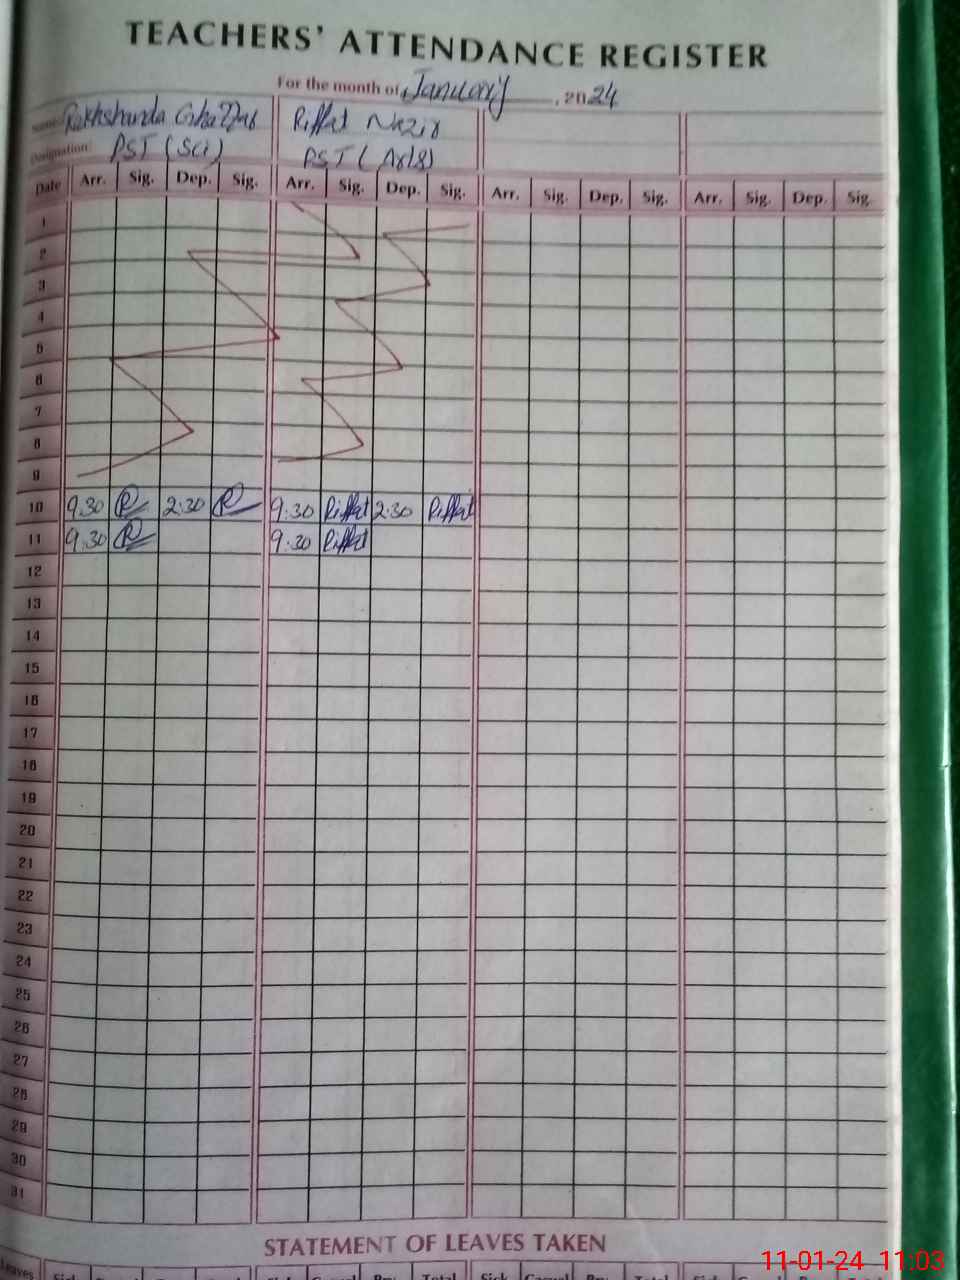 TEACHERS' ATTENDANCE REGISTER
For the month of January, 2024
Name: Rakhshanda Riffat Nazir
Designation: PST (Sci) PST (Arts)
Date Arr. Sig. Dep. Sig. Arr. Sig. Dep. Sig. Arr. Sig. Dep. Sig. Arr. Sig. Dep. Sig.
1
2
3
4
5
6
7
8
9
10 9.30 R 2:30 R 9:30 Riffat 2:30 Riffat
11 9.30 R 9:30 Riffat
12
13
14
15
16
17
18
19
20
21
22
23
24
25
26
27
28
29
30
31
STATEMENT OF LEAVES TAKEN
Leaves Sick Casual Total Sick Casual Total Sick Casual Total
11-01-24 11:03